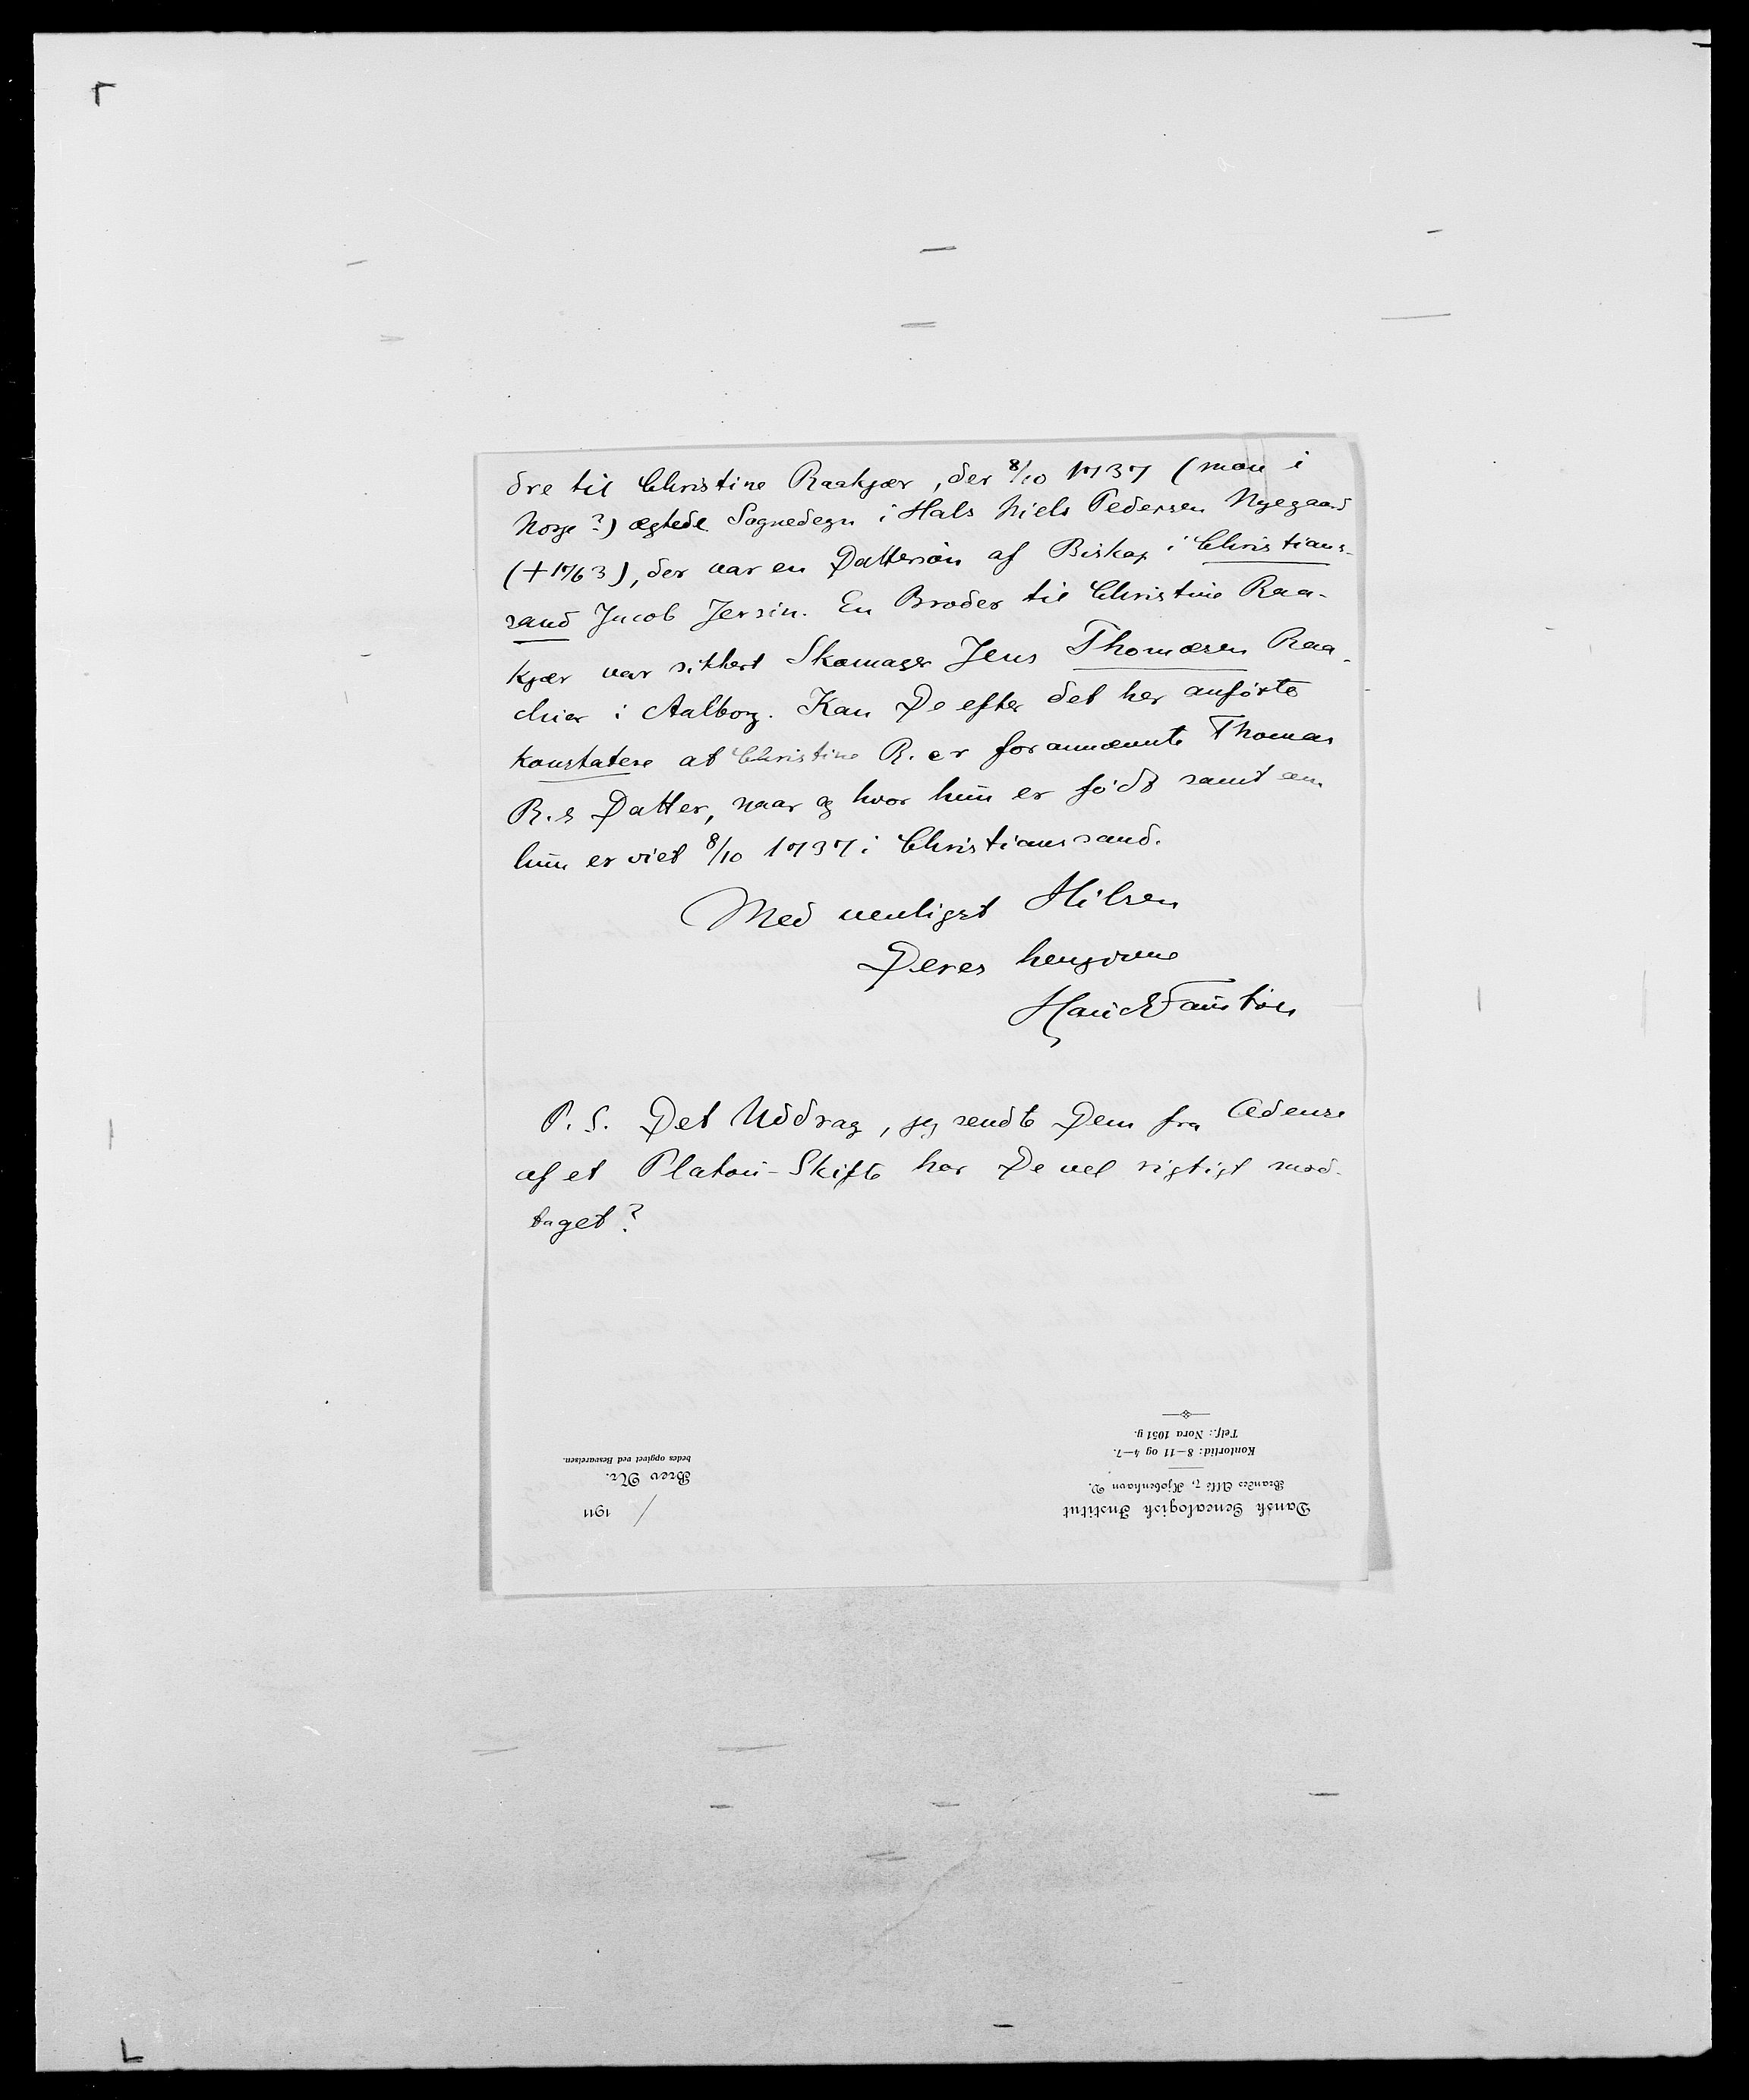 dre til Christine Raakjær, der 8/10 1737 (mon i
Norge?) ægtede Sognedegn i Hals Niels Pedersen Nyegaard
(+1763), der var en Dattersøn af Biskop i Christians-
sand Jacob Jersin. En Broder til Christine Raa-
kjær var sikkert Skomager Jens Thomæsen Raa-
chier i Aalborg. Kan De efter det her anførte
konstatere at Christine R. er forannævnte Thomas
R.s Datter, naar og hvor hun er født samt om
hun er viet 8/10 1737 i Christianssand.
Med venligst Hilsen
Deres hengivne
Hauch-Fausbøll
P.S. Det Uddrag, jeg sendte Dem fra Odense
af et Platou-Skifte har De vel rigtigt mod-
taget?
Dansk Genealogisk Institut
Brandes Allé 7, Kjøbenhavn V.
Kontortid: 8—11 og 4—7.
Telf.: Nora 1051 y.
/ 1911
Brev Nr.
bedes opgivet ved Besvarelsen.